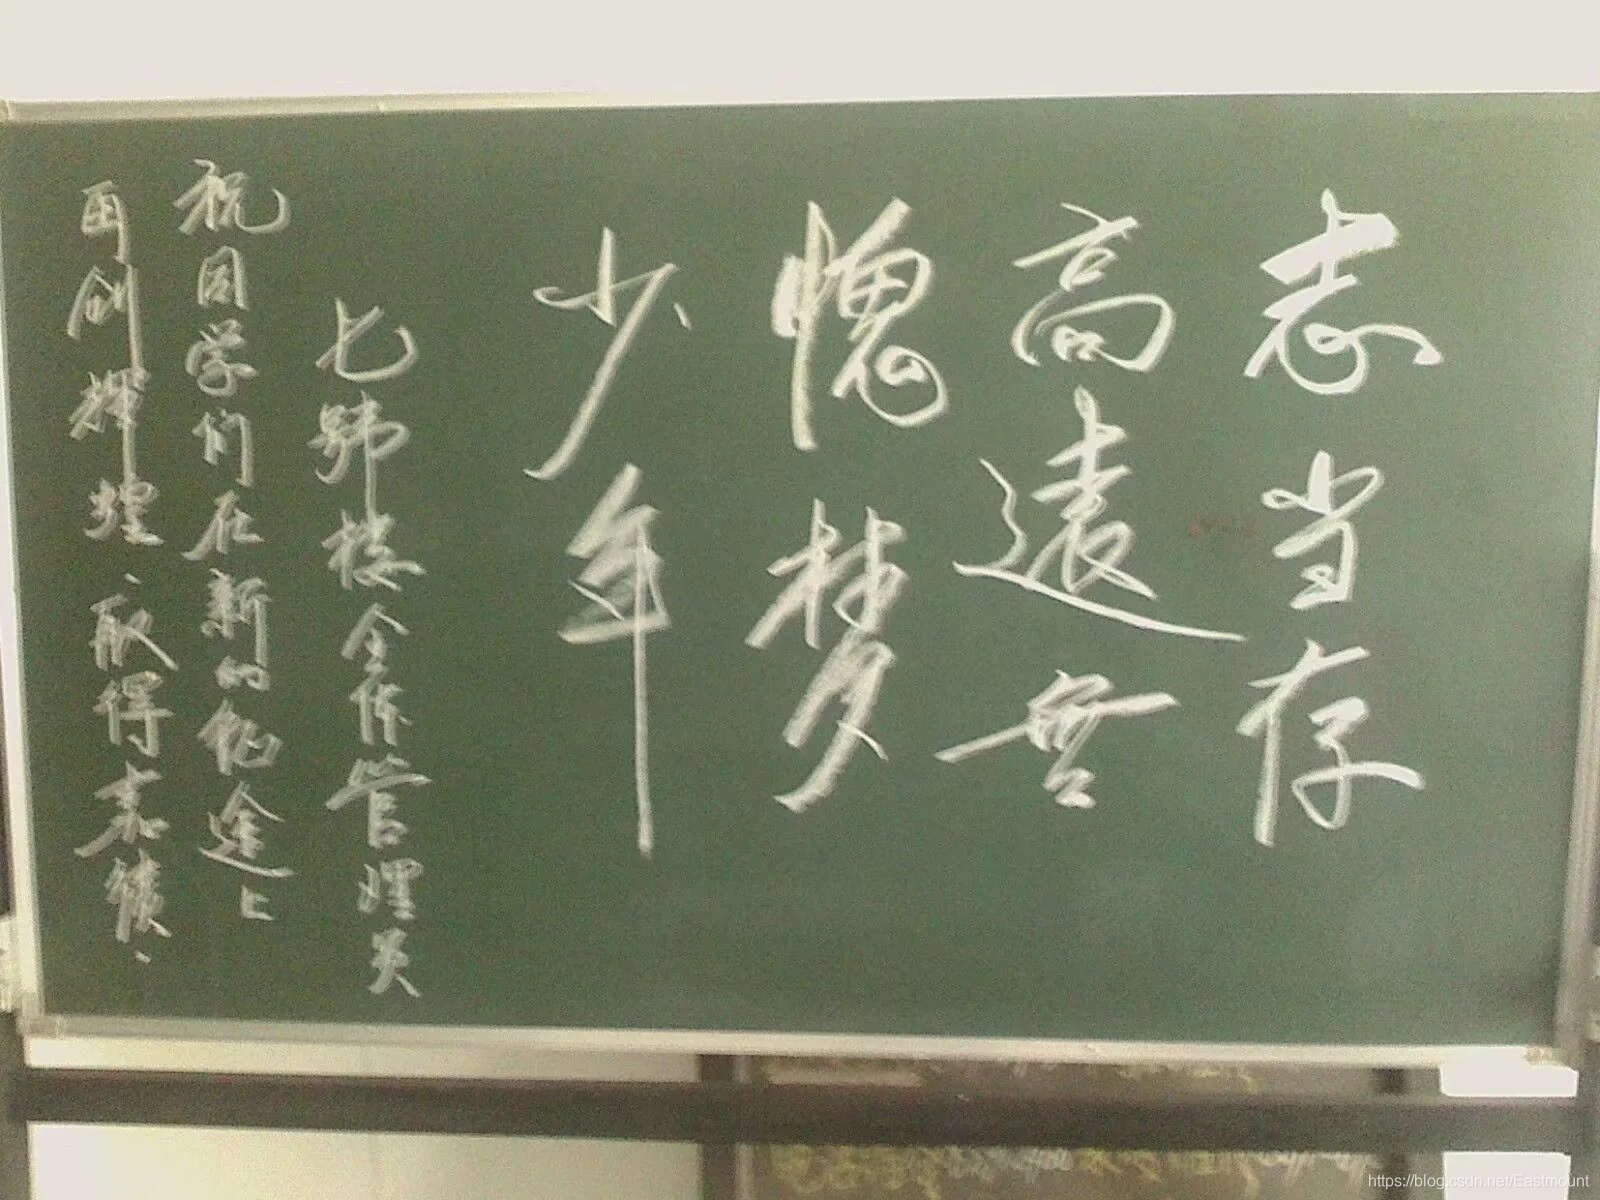 志当存
高遠无
愧梦
少年
七号楼全体管理员
祝同学们在新的征途上
再创辉煌、取得嘉绩、
https://blog.csdn.net/Eastmount